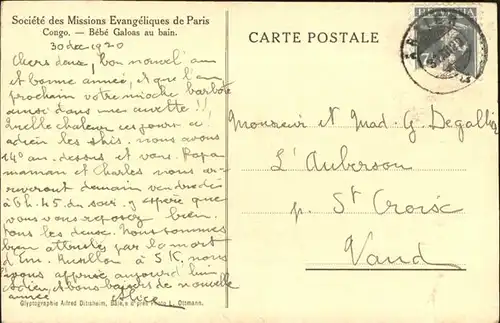 Société des Missions Evangéliques de Paris
Congo. — Bébé Galoas au bain.
30 dec 1920
Chers deux, bon nouvel an
et bonne année, et que l'an
prochain votre mioche barbote
aussi dans une cuvette !!
Quelle chaleur ces jours ci
adieu les skis, nous avons
14° au dessus et vous. Papa
maman et Charles nous ar-
riveront demain vendredi
à 6 h. 45 du soir. J'espère que
vous vous reposez bien
tous les deux. Nous sommes
bien attristés par la mort
d'Eug. à S K, nous
l'avons apprise aujourd'hui
adieu, et bons baisers de nouvelle
année Alice
Glyptographie Alfred Ditisheim, Bâle, d'après Photo L. Ottmann.
CARTE POSTALE
HELVETIA
7½
Monsieur et Mad. G. Degallier
L'Auberson
p. St Croix
Vaud